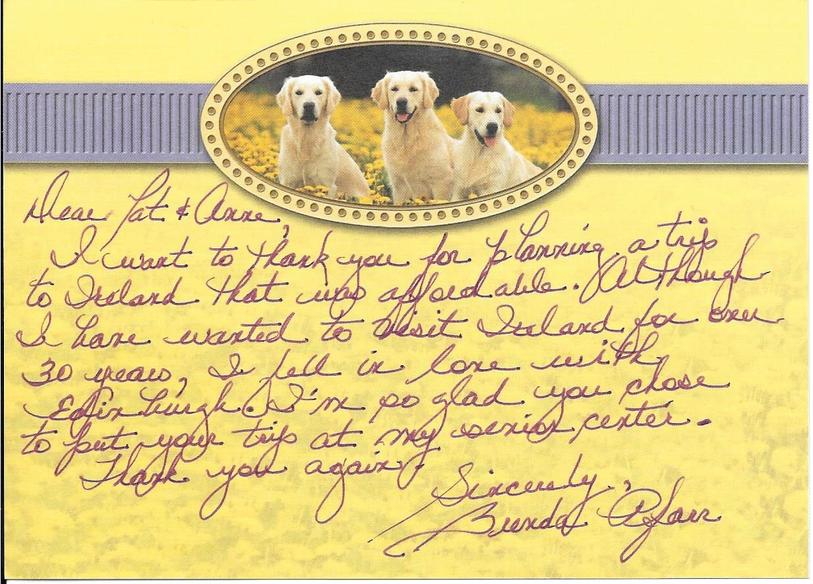 Dear Pat & Anne,
I want to thank you for planning a trip
to Ireland that was affordable. Although
I have wanted to visit Ireland for over
30 years, I fell in love with
Edinburgh. I'm so glad you chose
to put your trip at my senior center.
Thank you again.
Sincerely,
Brenda